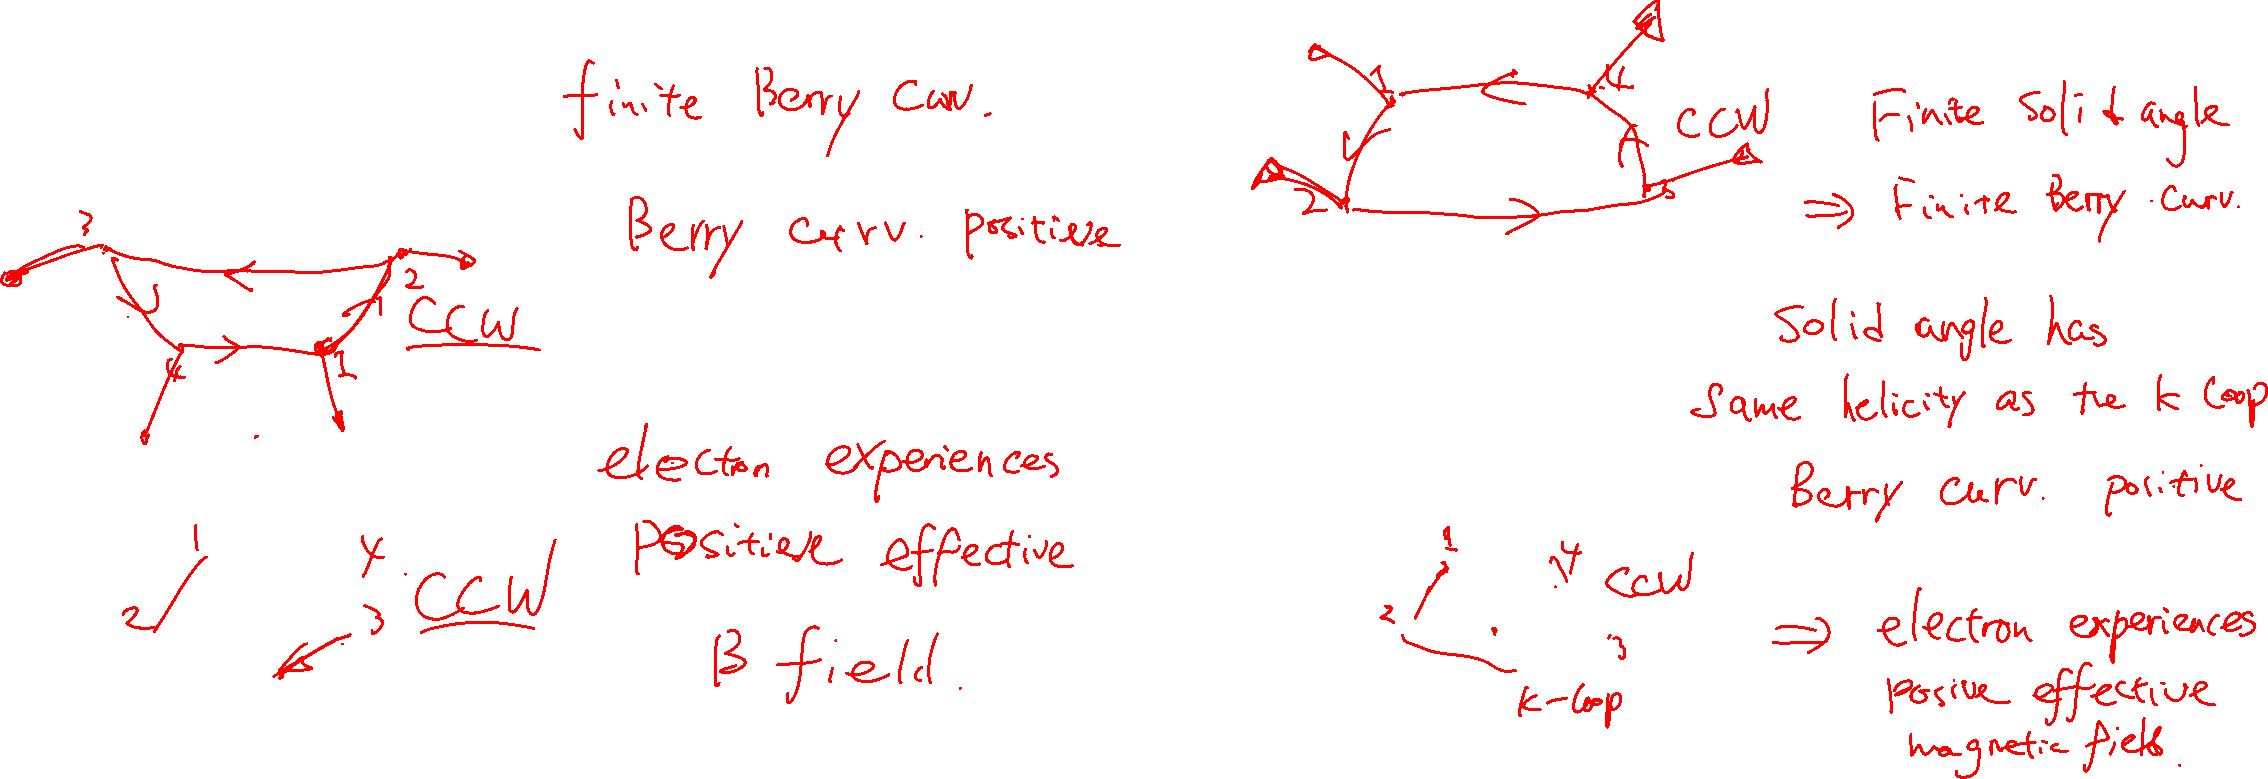 finite Berry Curv.
Berry curv. positive
3
2
CCW
4
1
electron experiences
Positive effective
B field.
1
4
2
3
CCW
1
4
CCW
2
3
Finite Solid angle
⇒ Finite Berry Curv.
Solid angle has
Same helicity as the k loop
Berry curv. positive
1
4
CCW
2
3
k-loop
⇒ electron experiences
posive effective
magnetic field.